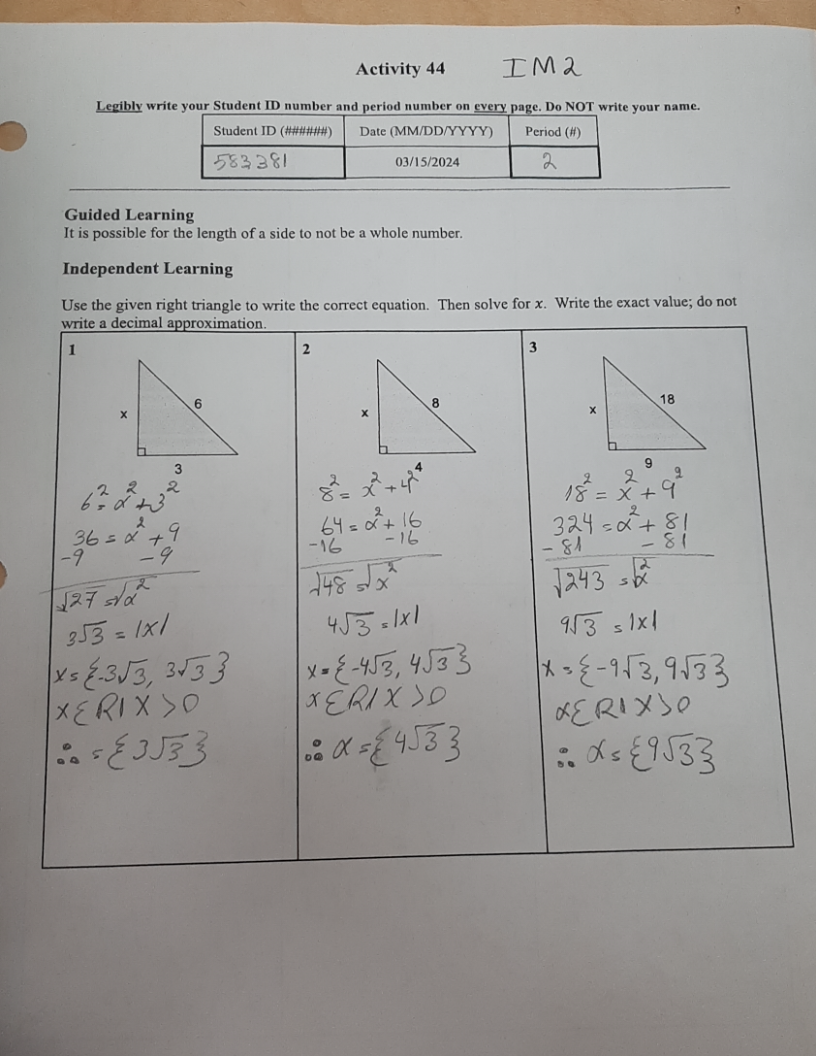 Activity 44 IM2
Legibly write your Student ID number and period number on every page. Do NOT write your name.
Student ID (######) Date (MM/DD/YYYY) Period (#)
583381 03/15/2024 2
Guided Learning
It is possible for the length of a side to not be a whole number.
Independent Learning
Use the given right triangle to write the correct equation. Then solve for x. Write the exact value; do not
write a decimal approximation.
1
x
6
3
6² = x² + 3²
36 = x² + 9
-9 -9
√27 = √x²
3√3 = |x|
x = {-3√3, 3√3}
x ∈ R | x > 0
∴ = {3√3}
2
x
8
4
8² = x² + 4²
64 = x² + 16
-16 -16
√48 = √x²
4√3 = |x|
x = {-4√3, 4√3}
x ∈ R | x > 0
∴ x = {4√3}
3
x
18
9
18² = x² + 9²
324 = x² + 81
- 81 - 81
√243 = √x²
9√3 = |x|
x = {-9√3, 9√3}
x ∈ R | x > 0
∴ x = {9√3}